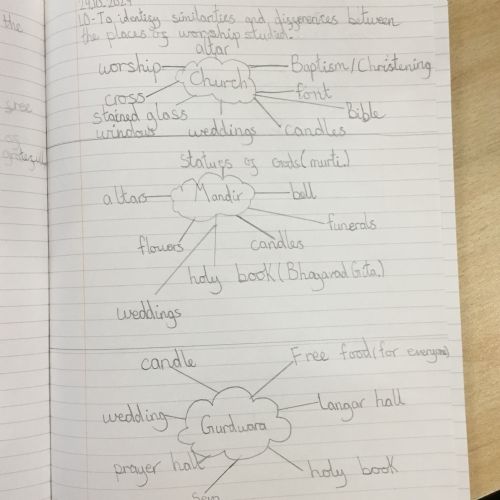 the
LO-To identify similarities and differences between
the places of worship studied.
altar
worship
Church
Baptism/Christening
cross
font
stained glass
windows
weddings
candles
Bible
Statues of Gods (murti.)
altars
Mandir
bell
flowers
candles
funerals
holy book (Bhagavad Gita.)
weddings
candle
Free food (for everyone)
wedding
Gurdwara
Langar hall
prayer hall
holy book